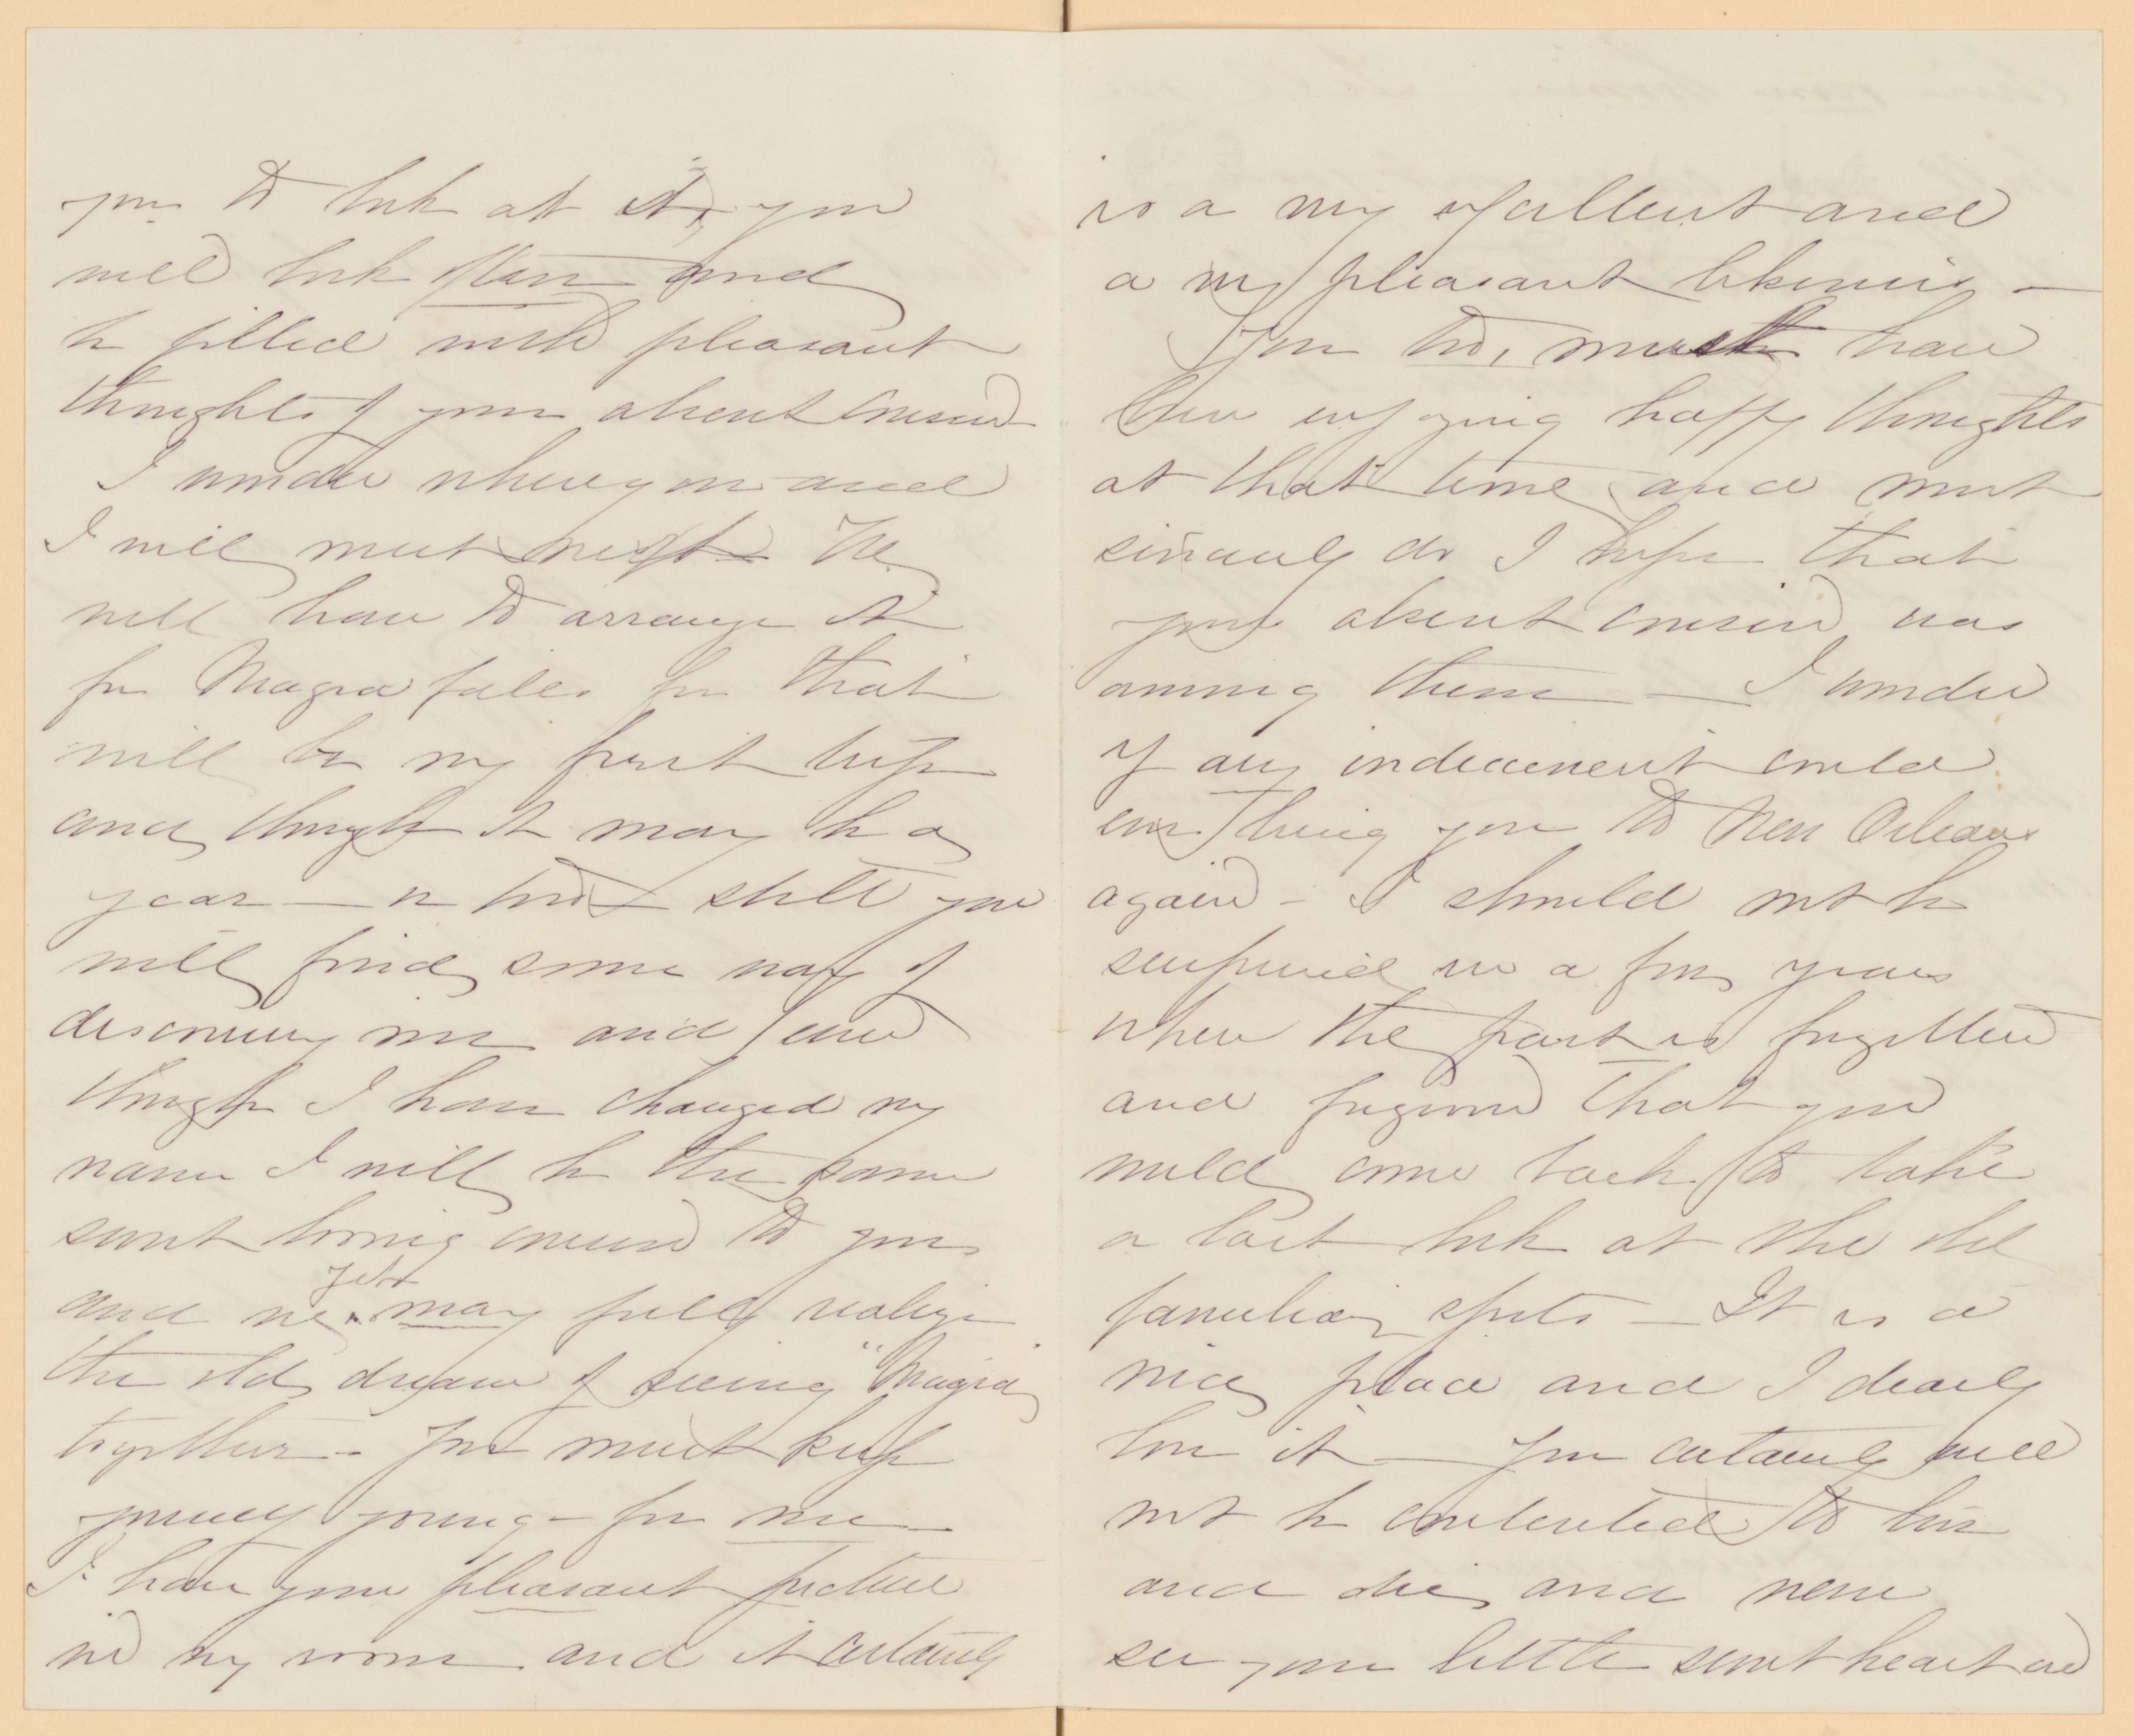 you to look at it, you
will look often and
be filled with pleasant
thoughts of your absent cousin
I wonder where you and
I will meet next. We
will have to arrange it
for Niagra falls for that
will be my first trip
and though it may be a
year — or two — still you
will find some way of
discovering me and even
though I have changed my
name I will be the same
sweet loving cousin to you
and we yet may fully realize
the old dream of seeing "Niagra"
together — You must keep
yourself young — for me —
I have your pleasant picture
in my room and it certainly
is a very excellent and
a very pleasant likeness —
You too, must have
been enjoying happy thoughts
at that time and most
sincerely do I hope that
your absent cousin was
among them — I wonder
if any inducement could
ever bring you to New Orleans
again — I should not be
surprised in a few years
when the past is forgotten
and forgiven that you
would come back to take
a last look at the old
familiar spots — It is a
nice place and I dearly
love it — You certainly will
not be contented to live
and die and never
see your little sweetheart